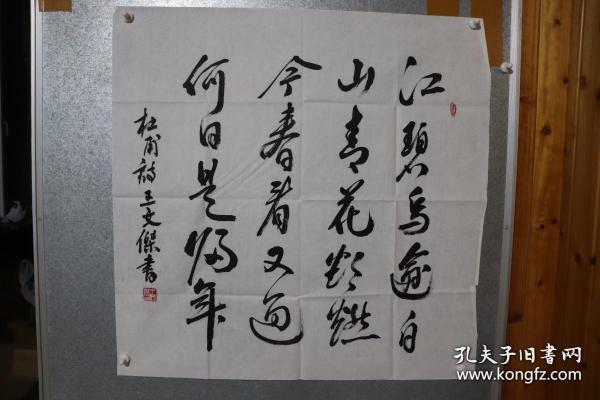 江碧鸟逾白
山青花欲燃
今春看又过
何日是归年
杜甫诗 王文傑书
孔夫子旧书网
www.kongfz.com